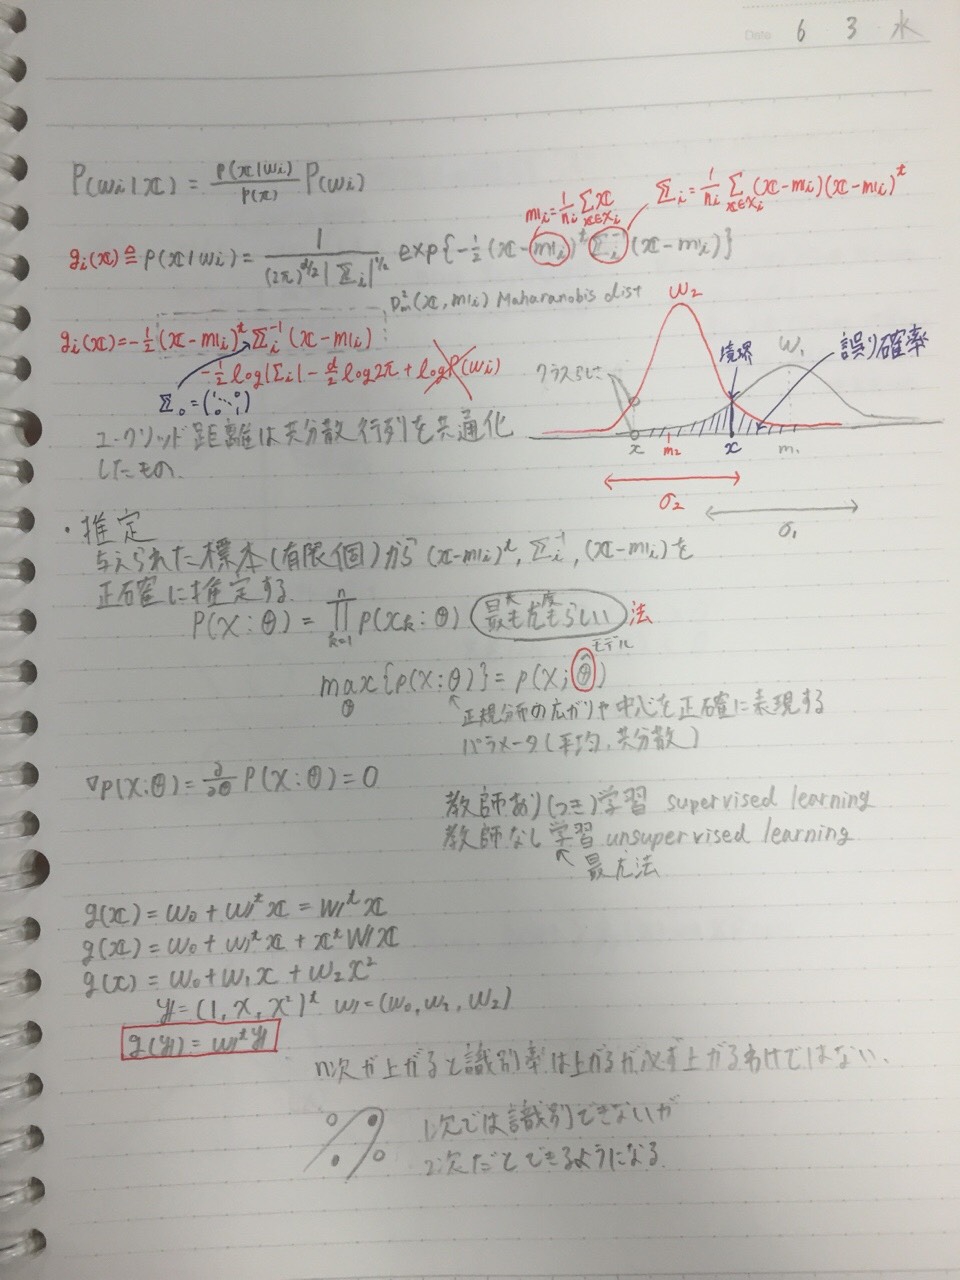 Date 6 3 水
P(ωi|x) = p(x|ωi)/p(x) P(ωi)
mi = 1/ni Σx∈Xi x
Σi = 1/ni Σx∈Xi (x-mi)(x-mi)^t
gi(x) ≜ p(x|ωi) = 1/((2π)^d/2 |Σi|^1/2) exp{-1/2 (x-mi)^t Σi^-1 (x-mi)}
Dm^2(x, mi) Maharanobis dist
gi(x) = -1/2 (x-mi)^t Σi^-1 (x-mi)
-1/2 log|Σi| - d/2 log2π + logP(ωi)
Σ0 = (1 ⋱ 1)
ユークリッド距離は共分散行列を共通化
したもの.
ω2
境界
ω1
誤り確率
x m2 x m1
σ2
σ1
・推定
与えられた標本(有限個)から (x-mi)^t, Σi^-1, (x-mi)を
正確に推定する.
P(X:θ) = Π k=1 n p(xk:θ) 最も尤もらしい 法
大 度
モデル
max θ {p(X:θ)} = p(X; θ̂)
正規分布の広がりや中心を正確に表現する
パラメータ(平均,共分散)
∇p(X:θ) = ∂/∂θ P(X:θ) = 0
教師あり(つき)学習 supervised learning
教師なし学習 unsupervised learning
最尤法
g(x) = ω0 + w^t x = w^t x
g(x) = ω0 + w^t x + x^t W x
g(x) = ω0 + ω1 x + ω2 x^2
y = (1, x, x^2)^t w = (ω0, ω1, ω2)
g(y) = w^t y
n次が上がると識別率は上がるが,必ず上がるわけではない.
1次では識別できないが
2次だとできるようになる.